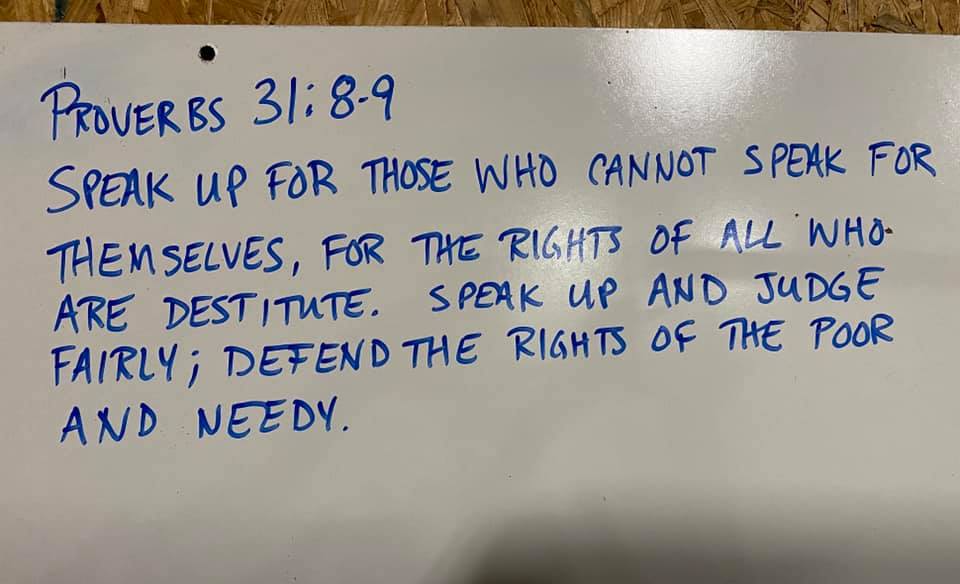 PROVERBS 31:8-9
SPEAK UP FOR THOSE WHO CANNOT SPEAK FOR
THEMSELVES, FOR THE RIGHTS OF ALL WHO
ARE DESTITUTE. SPEAK UP AND JUDGE
FAIRLY; DEFEND THE RIGHTS OF THE POOR
AND NEEDY.